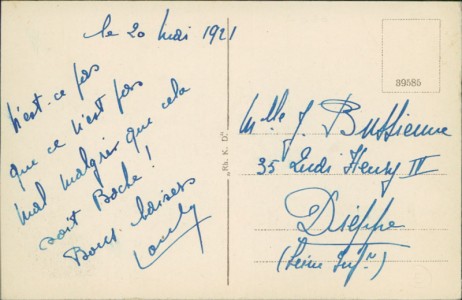 le 20 Mai 1921
N'est-ce pas
que ce n'est pas
mal malgré que cela
soit Boche!
Bons baisers
39585
"Rh. K. D."
Mlle J. Bussienne
35 Henry IV
Dieppe
(Seine Infre)